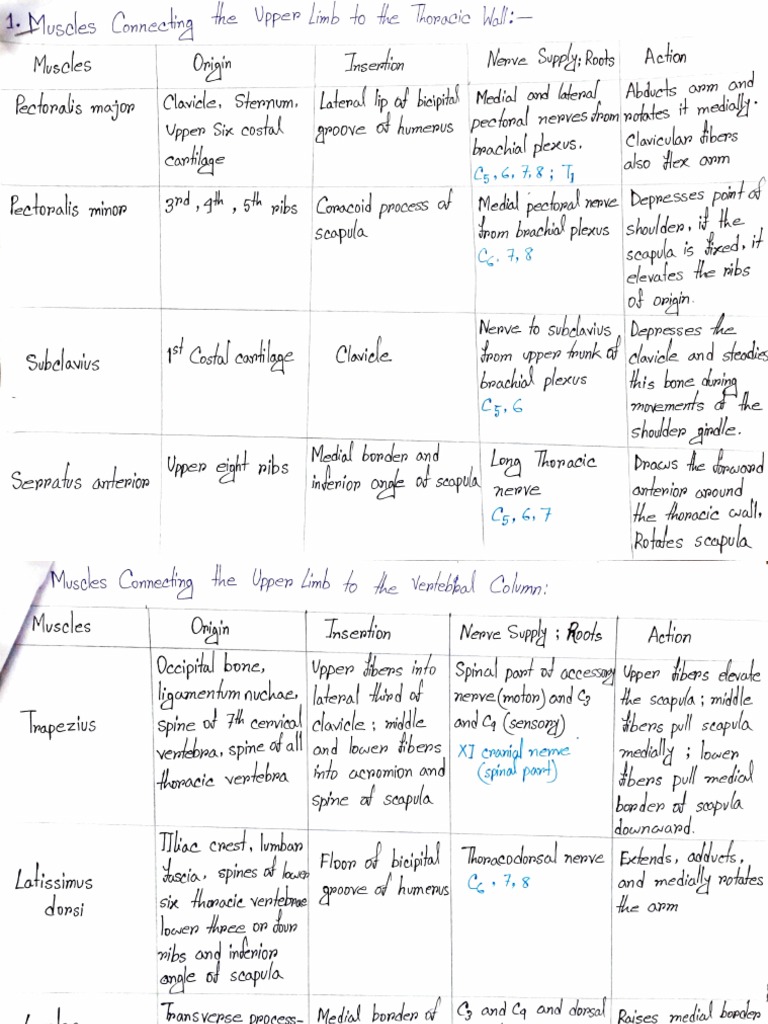 1. Muscles Connecting the Upper Limb to the Thoracic Wall:-
Muscles
Origin
Insertion
Nerve Supply; Roots
Action
Pectoralis major
Clavicle, Sternum,
Upper Six costal
cartilage
Lateral lip of bicipital
groove of humerus
Medial and lateral
pectoral nerves from
brachial plexus.
C5, 6, 7, 8 ; T1
Abducts arm and
rotates it medially.
Clavicular fibers
also flex arm
Pectoralis minor
3rd, 4th, 5th ribs
Coracoid process of
scapula
Medial pectoral nerve
from brachial plexus
C6. 7, 8
Depresses point of
shoulder, if the
scapula is fixed, it
elevates the ribs
of origin.
Subclavius
1st Costal cartilage
Clavicle
Nerve to subclavius
from upper trunk of
brachial plexus
C5, 6
Depresses the
clavicle and steadies
this bone during
movements of the
shoulder girdle.
Serratus anterior
Upper eight ribs
Medial border and
inferior angle of scapula
Long Thoracic
nerve
C5, 6, 7
Draws the forward
anterior around
the thoracic wall.
Rotates scapula
Muscles Connecting the Upper Limb to the Vertebral Column:
Muscles
Origin
Insertion
Nerve Supply ; Roots
Action
Trapezius
Occipital bone,
ligamentum nuchae,
spine of 7th cervical
vertebra, spine of all
thoracic vertebra
Upper fibers into
lateral third of
clavicle ; middle
and lower fibers
into acromion and
spine of scapula
Spinal part of accessory
nerve (motor) and C3
and C4 (sensory)
XI cranial nerve
(spinal part)
Upper fibers elevate
the scapula ; middle
fibers pull scapula
medially ; lower
fibers pull medial
border of scapula
downward.
Latissimus
dorsi
Iliac crest, lumbar
fascia, spines of lower
six thoracic vertebrae
lower three or four
ribs and inferior
angle of scapula
Floor of bicipital
groove of humerus
Thoracodorsal nerve
C6, 7, 8
Extends, adducts,
and medially rotates
the arm
Transverse process-
Medial border of
C3 and C4 and dorsal
Raises medial border